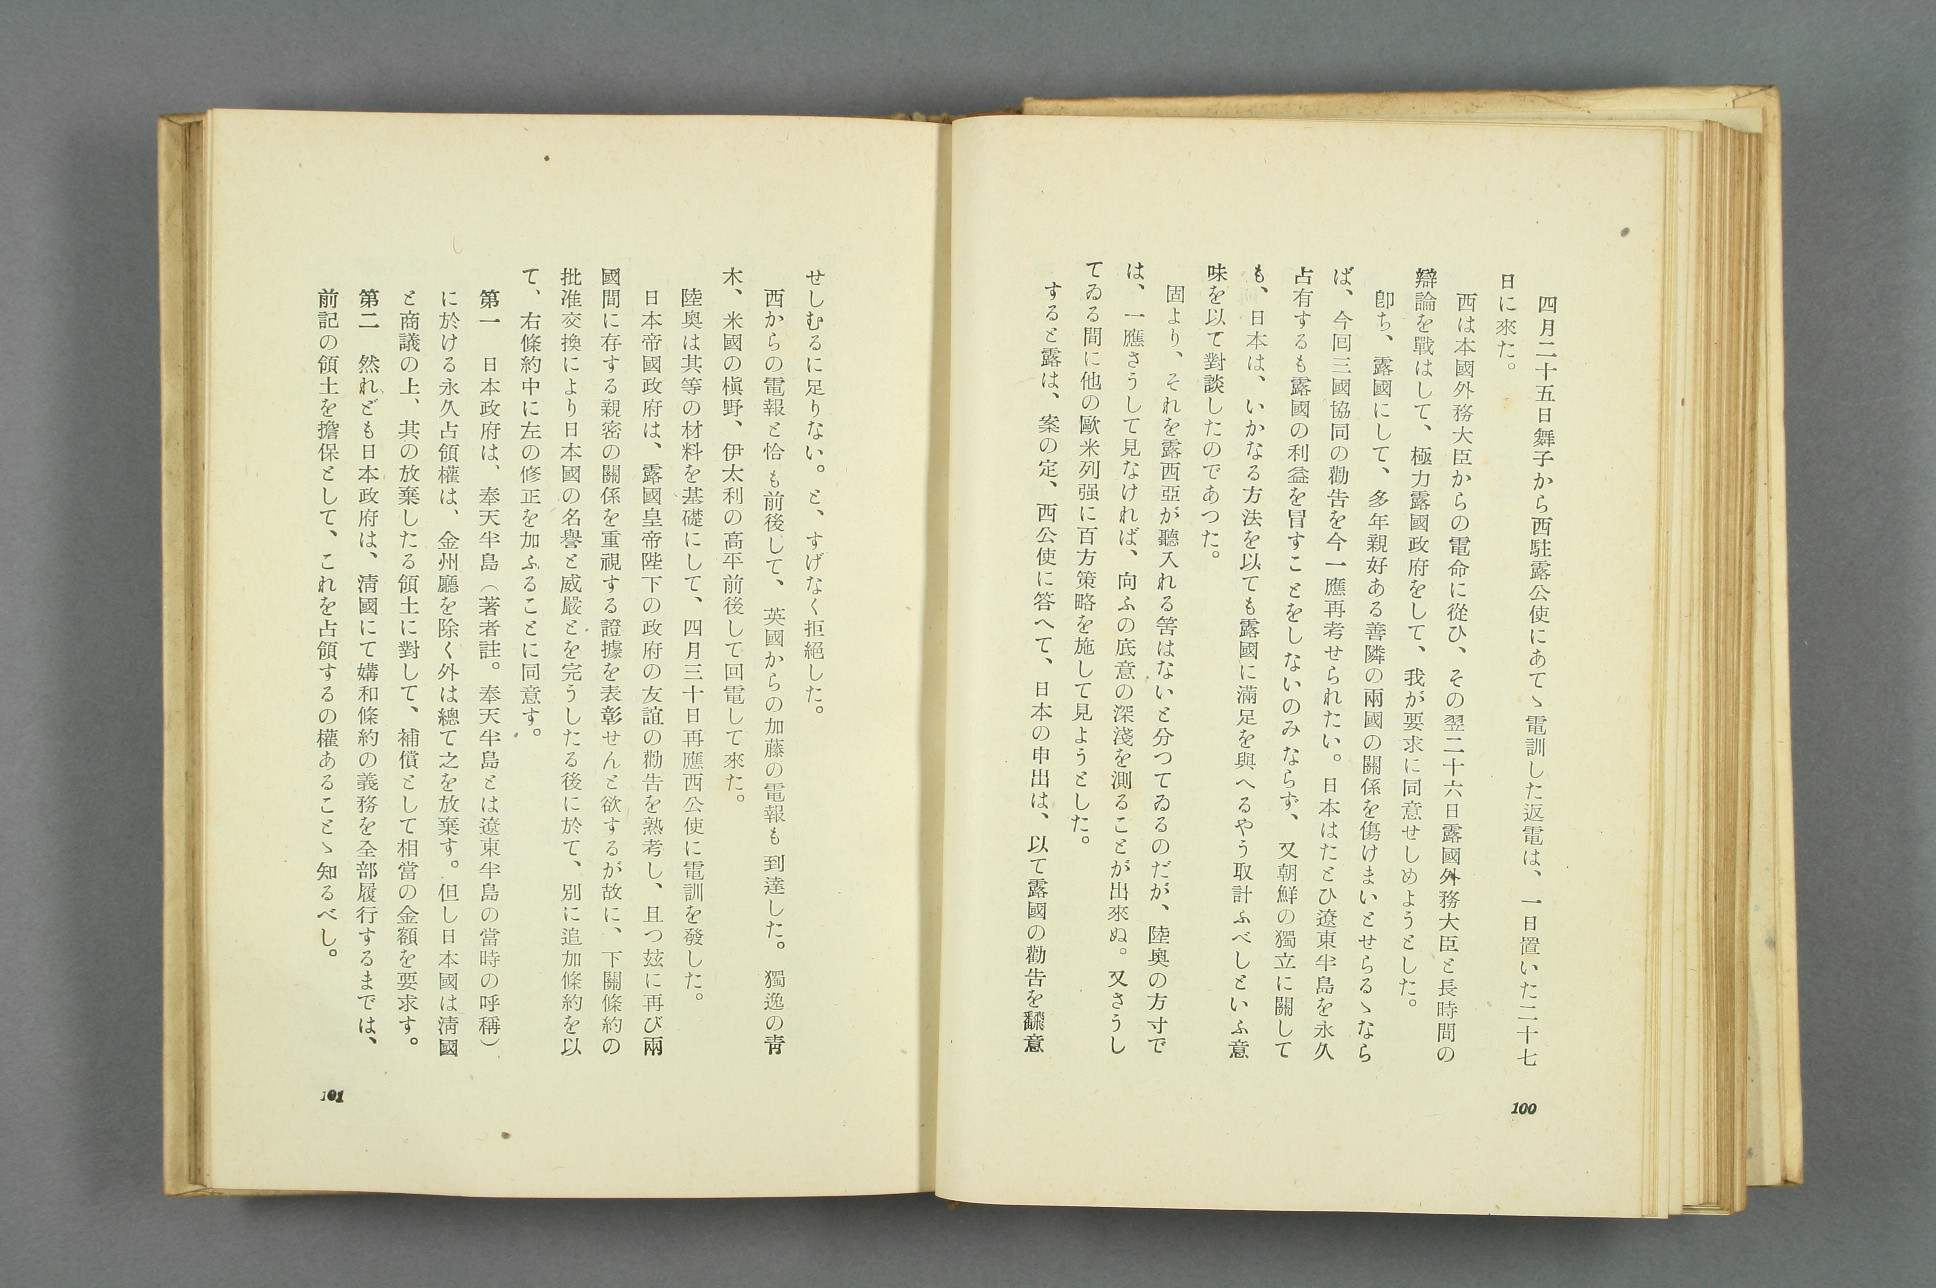 四月二十五日舞子から西駐露公使にあてゝ電訓した返電は、一日置いた二十七
日に來た。
西は本國外務大臣からの電命に從ひ、その翌二十六日露國外務大臣と長時間の
辯論を戰はして、極力露國政府をして、我が要求に同意せしめようとした。
卽ち、露國にして、多年親好ある善隣の兩國の關係を傷けまいとせらるゝなら
ば、今回三國協同の勸告を今一應再考せられたい。日本はたとひ遼東半島を永久
占有するも露國の利益を冒すことをしないのみならず、又朝鮮の獨立に關して
も、日本は、いかなる方法を以ても露國に滿足を與へるやう取計ふべしといふ意
味を以て對談したのであつた。
固より、それを露西亞が聽入れる筈はないと分つてゐるのだが、陸奧の方寸で
は、一應さうして見なければ、向ふの底意の深淺を測ることが出來ぬ。又さうし
てゐる間に他の歐米列强に百方策略を施して見ようとした。
すると露は、案の定、西公使に答へて、日本の申出は、以て露國の勸告を飜意
100
せしむるに足りない。と、すげなく拒絕した。
西からの電報と恰も前後して、英國からの加藤の電報も到達した。獨逸の靑
木、米國の槇野、伊太利の高平前後して回電して來た。
陸奧は其等の材料を基礎にして、四月三十日再應西公使に電訓を發した。
日本帝國政府は、露國皇帝陛下の政府の友誼の勸告を熟考し、且つ玆に再び兩
國間に存する親密の關係を重視する證據を表彰せんと欲するが故に、下關條約の
批准交換により日本國の名譽と威嚴とを完うしたる後に於て、別に追加條約を以
て、右條約中に左の修正を加ふることに同意す。
第一　日本政府は、奉天半島（著者註。奉天半島とは遼東半島の當時の呼稱）
に於ける永久占領權は、金州廳を除く外は總て之を放棄す。但し日本國は淸國
と商議の上、其の放棄したる領土に對して、補償として相當の金額を要求す。
第二　然れども日本政府は、淸國にて媾和條約の義務を全部履行するまでは、
前記の領土を擔保として、これを占領するの權あることゝ知るべし。
101